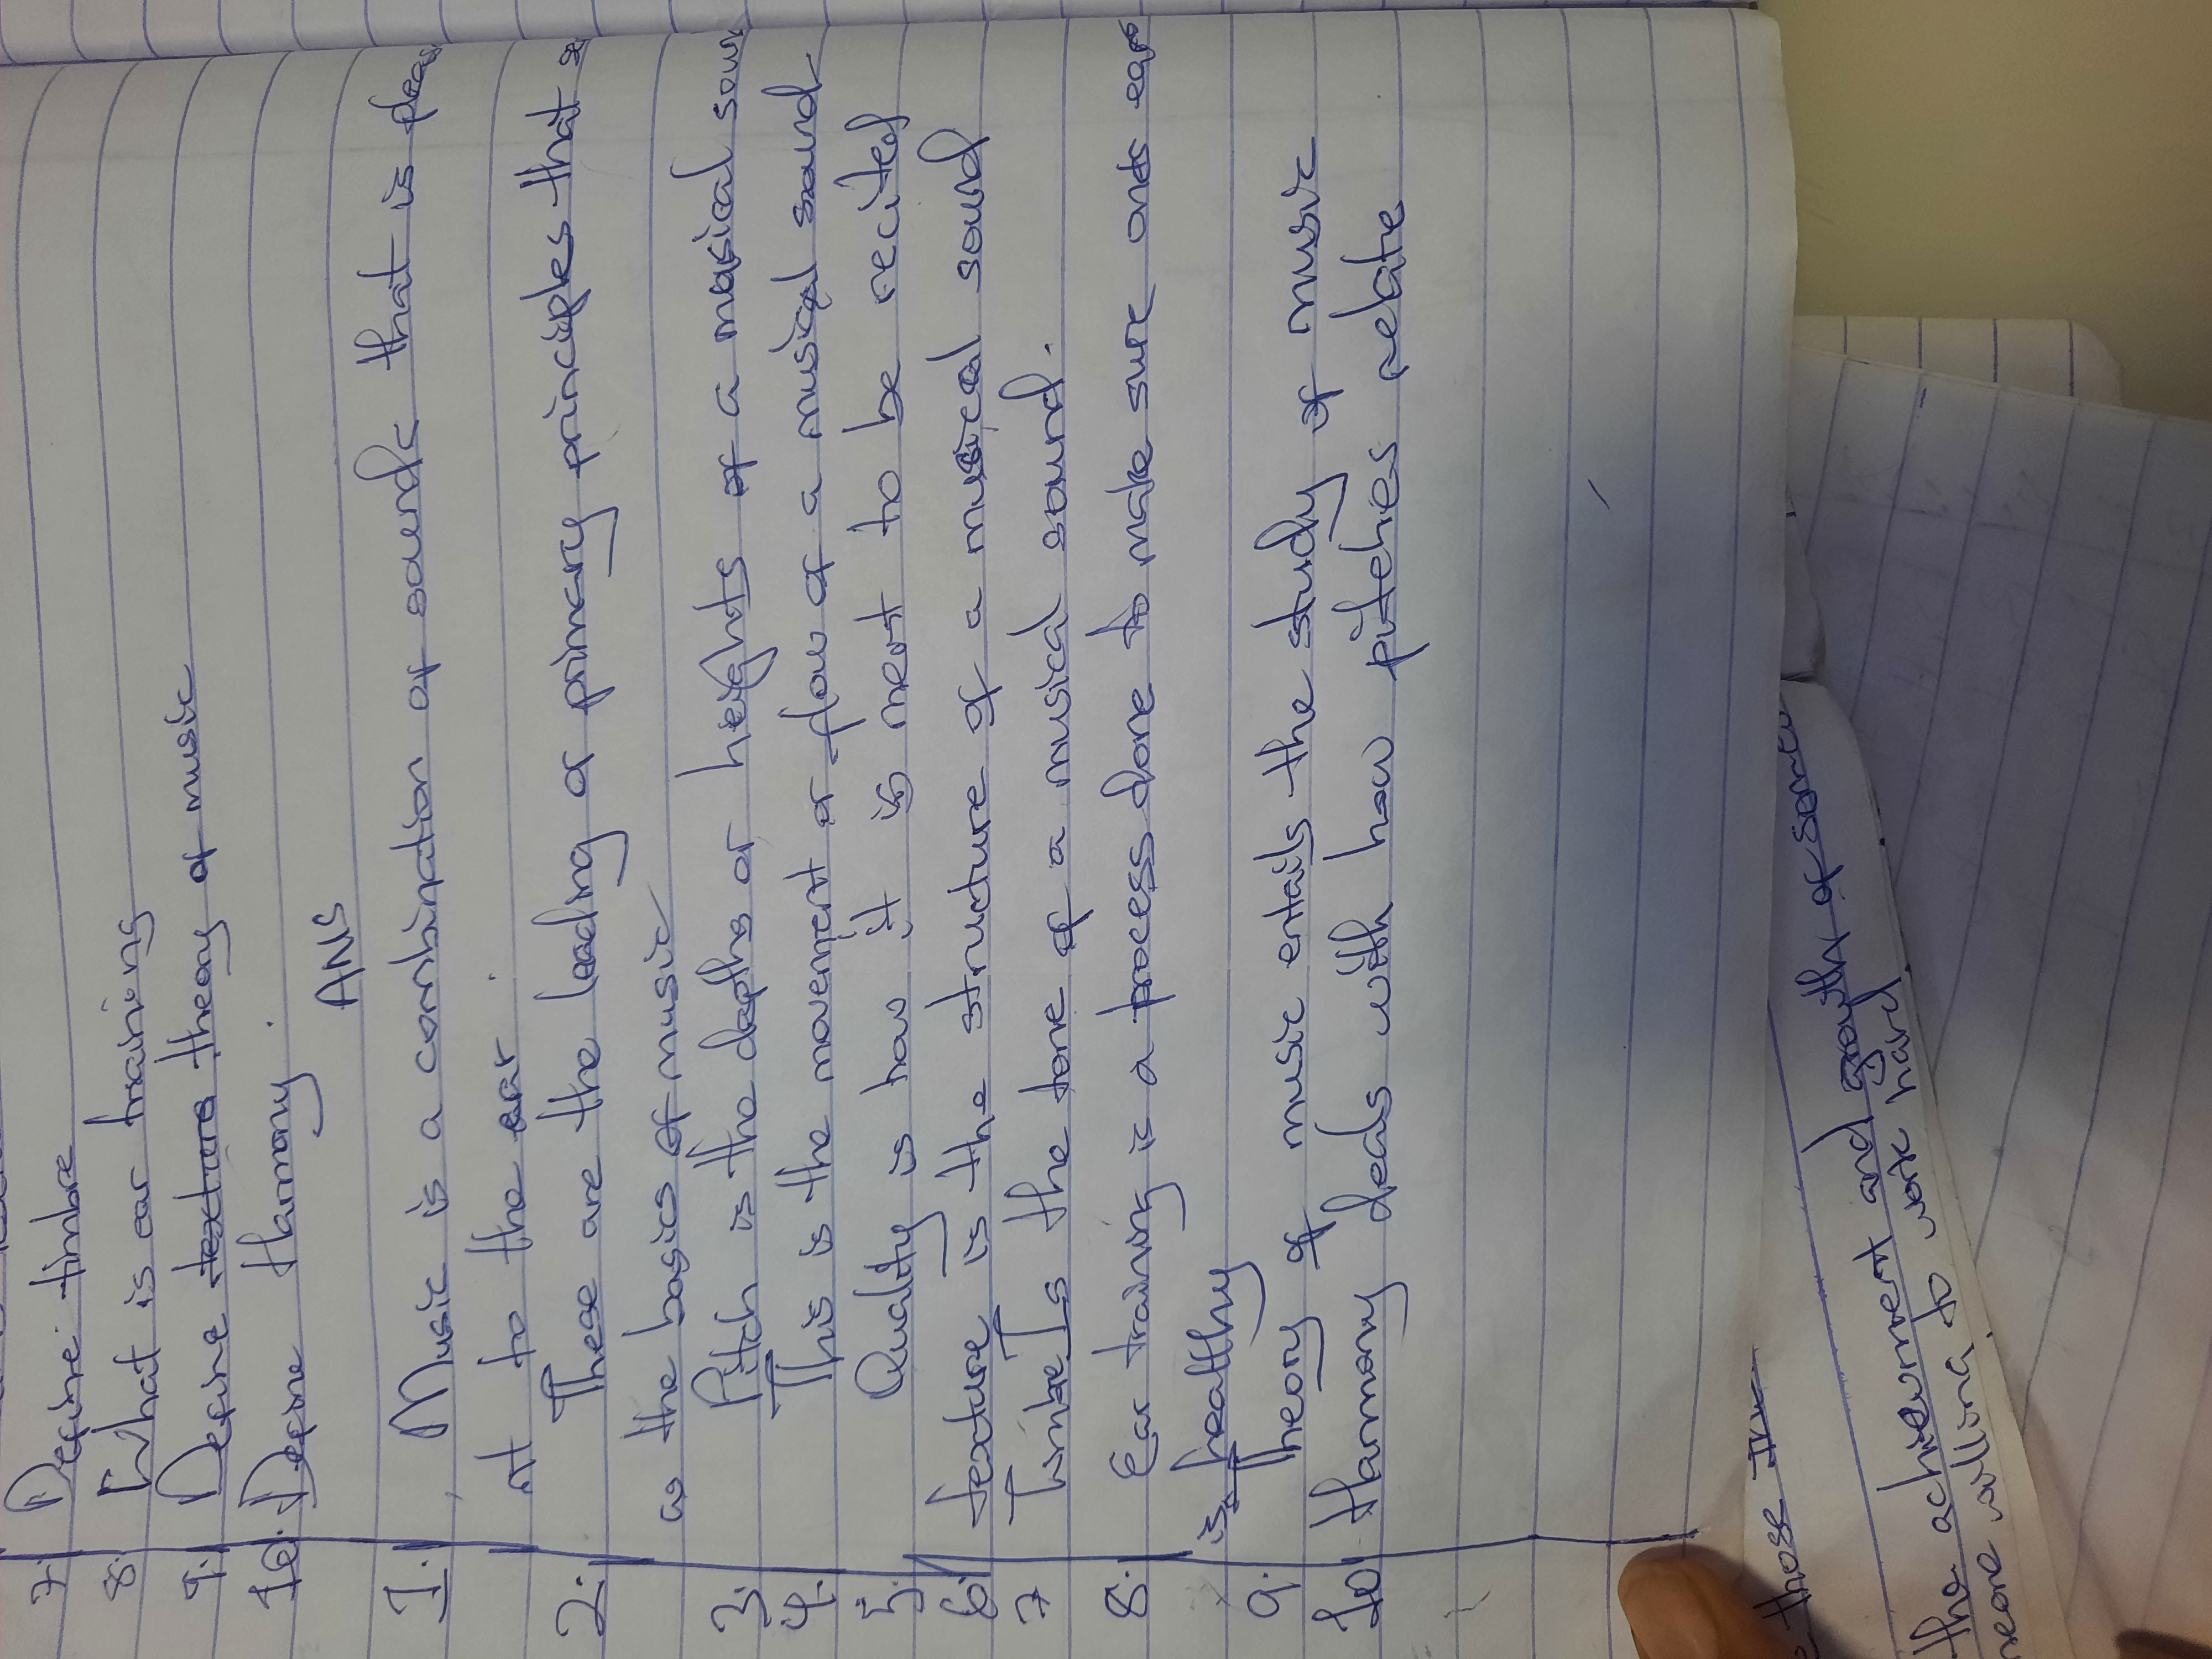 7. Define timbre
8. What is ear training
9. Define texture theory of music
10. Define Harmony.
ANS
1. Music is a combination of sounds that is pleas
nt to the ear.
2. These are the leading or primary principles that
as the basics of music
3. Pitch is the depths or heights of a musical soun
4. This is the movement or flow of a musical sound
5. Quality is how it is ment to be recited
6. texture is the structure of a musical sound
7 Timbe Is the tone of a musical sound.
8. Ear training is a process done to make sure ones ears
is healthy
9. Theory of music entails the study of music
10 Harmony deals with how pitches relate
those
the achievement and growth of some
more willing to work hard.